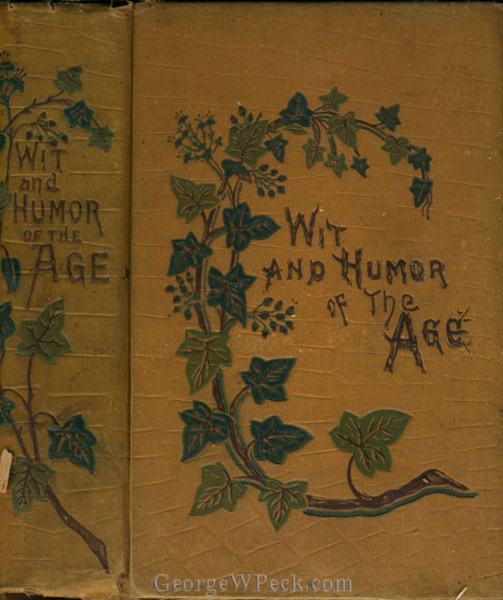 WIT
and
HUMOR
OF THE
AGE
WIT
AND HUMOR
of The
AGE
GeorgeWPeck.com